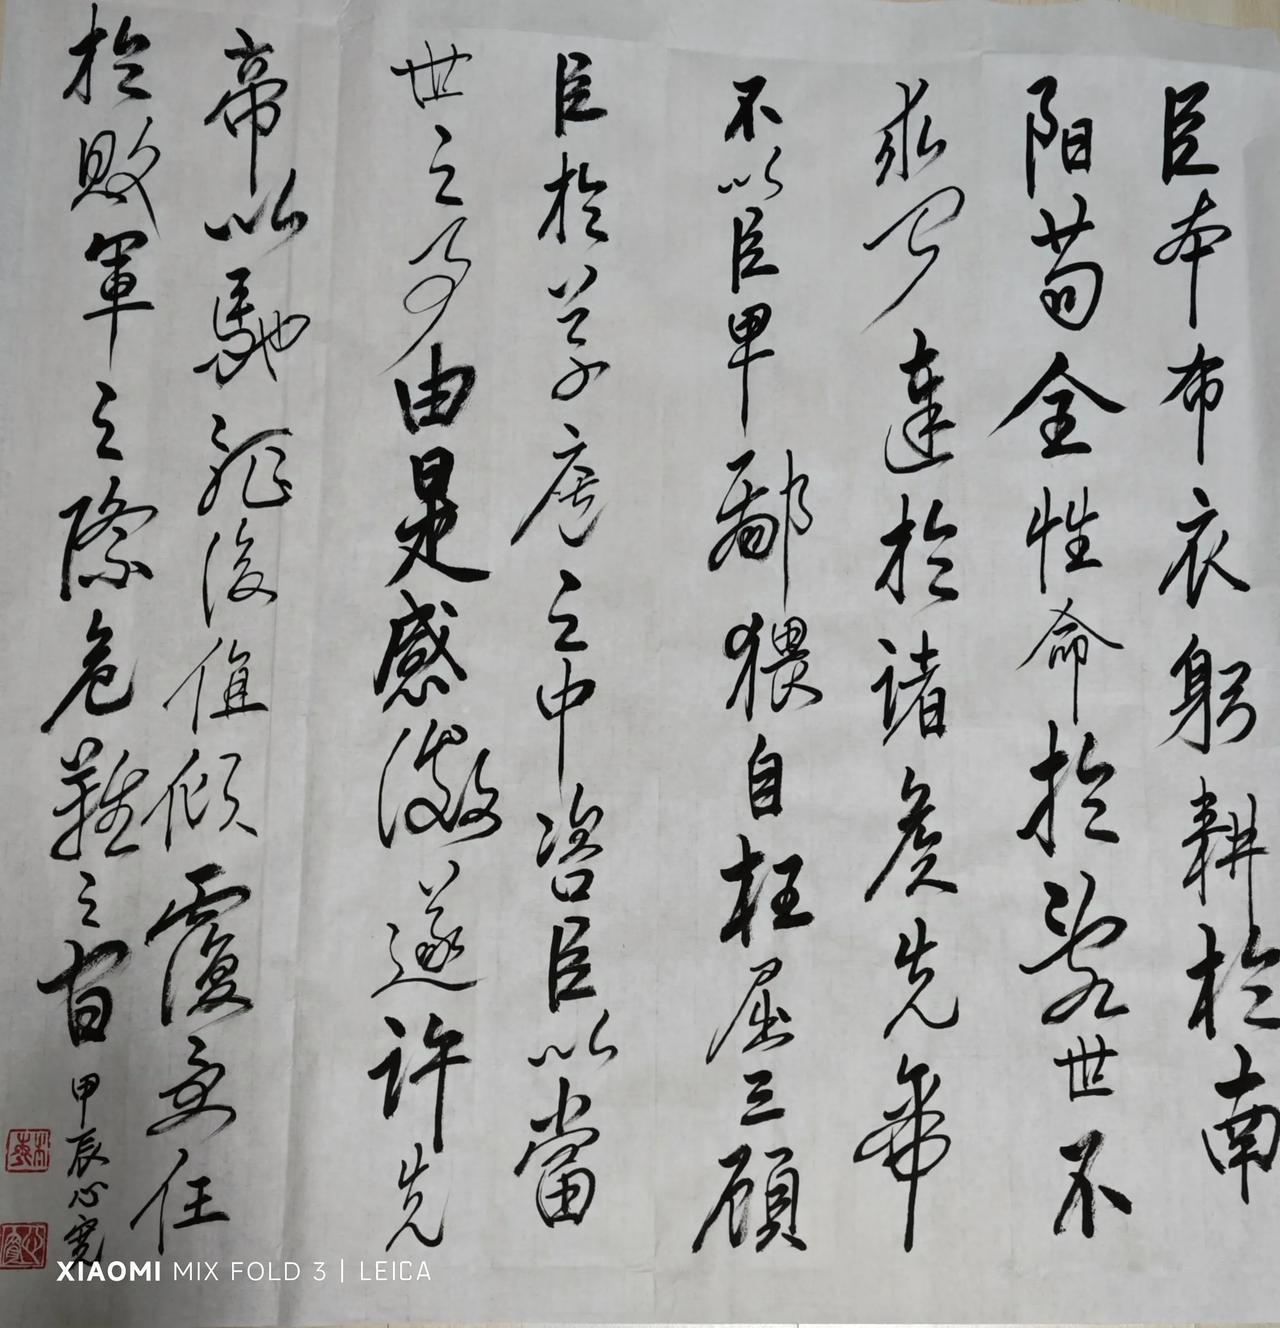 臣本布衣躬耕於南
阳苟全性命於亂世不
求聞達於諸侯先帝
不以臣卑鄙猥自枉屈三顧
臣於草廬之中咨臣以當
世之事由是感激遂許先
帝以馳驅後值傾覆受任
於敗軍之際危難之
甲辰心寬
XIAOMI MIX FOLD 3 | LEICA